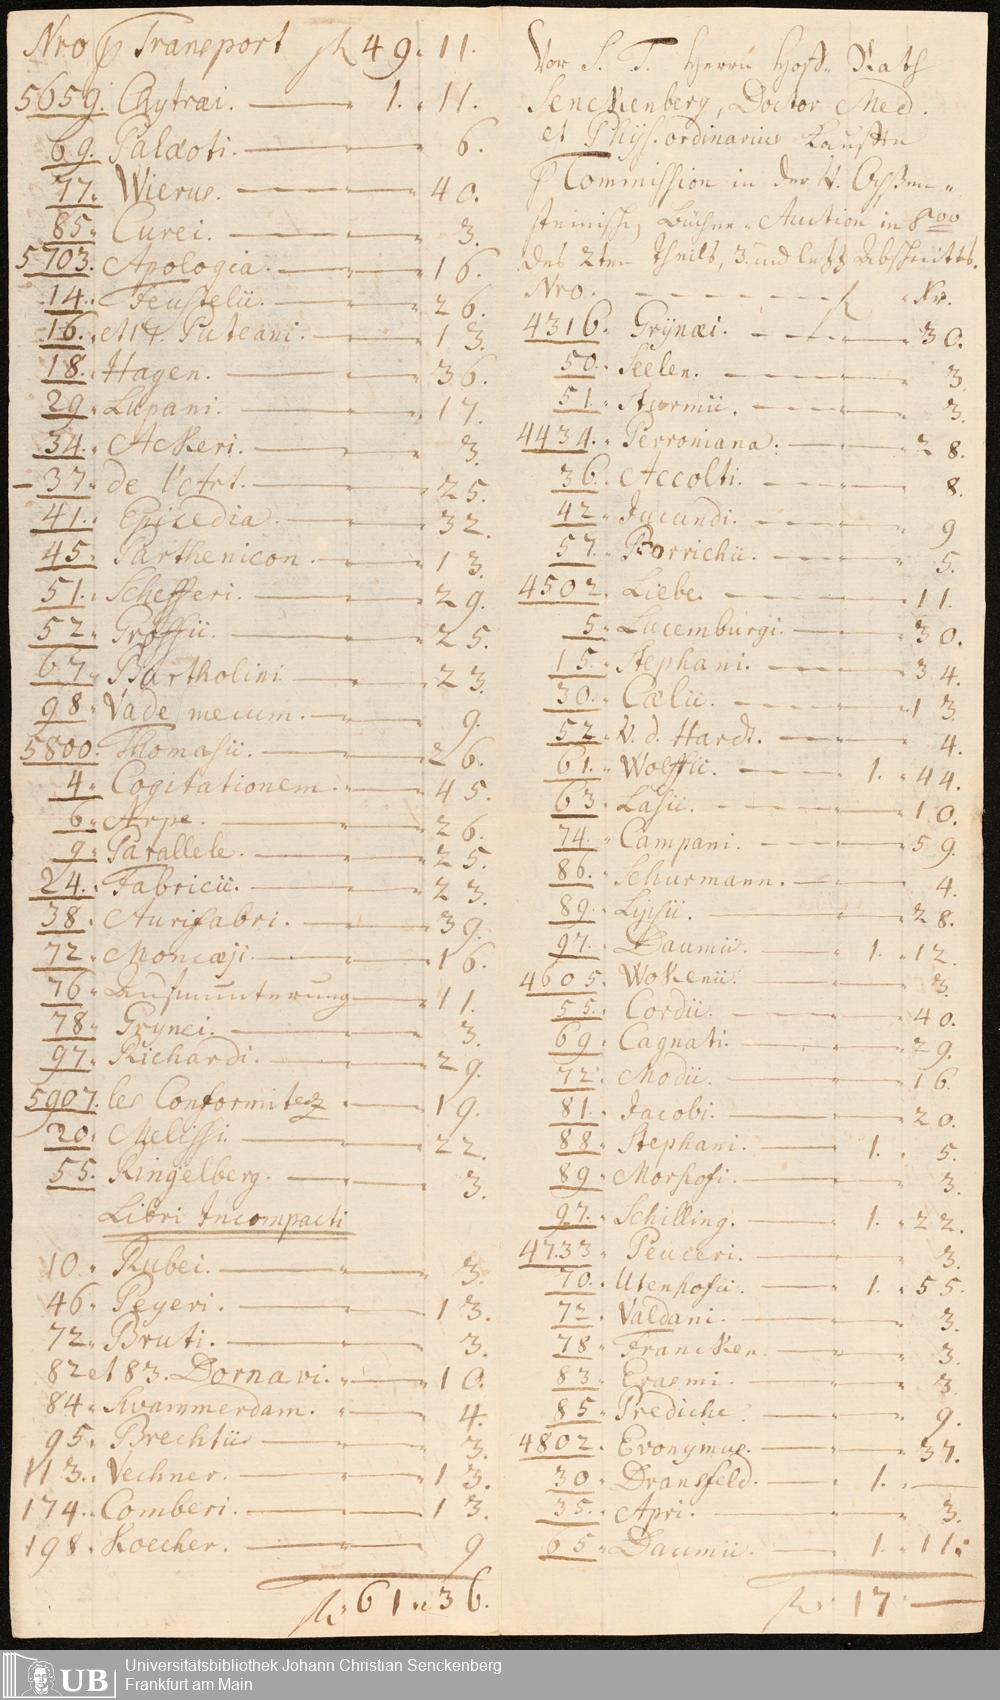 Nro p Transport f 49. 11.
5659. Chytraei. 1. 11.
69. Palaeoti. 6.
77. Wierus. 40.
85. Curei. 3.
5703. Apologia. 16.
14. Feustelii. 26.
16. et 17. Puteani. 13.
18. Hagen. 36.
29. Lupani. 17.
34. Ackeri. 3.
37. de l'Art. 25.
41. Epicedia. 32.
45. Parthenicon. 13.
51. Schefferi. 29.
52. Groffii. 25.
67. Bartholini 23.
98. Vade mecum. 9.
5800. Thomasii. 26.
4. Cogitationem. 45.
6. Arpe. 26.
9. Parallele. 25.
24. Fabricii. 23.
38. Aurifabri. 39.
72. Moncaeji. 16.
76. Aufmunterung 11.
78. Grynei. 3.
97. Richardi. 29.
5907. les Conformitez 19.
20. Melissi. 22.
55. Ringelberg. 3.
Libri Incompacti
10. Rubei. 3.
46. Peyeri. 13.
72. Bruti. 3.
82 et 83. Dornavi. 10.
84. Swammerdam. 4.
95. Brechtii 3.
113. Vechner. 13.
174. Comberi. 13.
198. Koecher. 9
f 61. 36.
Vor S. T. Herrn Hoff-Rath
Senckenberg, Doctor Med.
et Phys. ordinarius
p Commission in der V. Ochsen-
steinisch, Bücher-Auction in 8vo
des 2ten Theils, 3. und letzt Abschnitts.
Nro. f Xr.
4316. Grÿnaei. 30.
50. Seelen. 3.
51. Sturmii. 3.
4434. Perroniana. 28.
36. Accolti. 8.
42. Jucundi. 9
57. Borrichii. 5.
4502. Liebe. 11.
5. Lucemburgi. 30.
15. Stephani. 34.
30. Caelii. 13.
52. V. d. Hardt. 4.
61. Wolffii. 1. 44.
63. Lasii. 10.
74. Campani. 59.
86. Schurmann. 4.
89. Lipsii. 28.
97. Daumii. 1. 12.
4605. Wokenii. 3.
55. Cordii. 40.
69. Cagnati. 29.
72. Modii. 16.
81. Jacobi. 20.
88. Stephani. 1. 5.
89. Morhofi. 3.
97. Schilling. 1. 22.
4733. Peuceri. 3.
70. Utenhofii. 1. 55.
72. Valdani. 3.
78. Francken. 3.
83. Erasmi. 3.
85. Prediche. 9.
4802. Evonymus. 37.
30. Dransfeld. 1.
35. Apri. 3.
65. Daumii. 1. 11.
f 17.
UB Universitätsbibliothek Johann Christian Senckenberg
Frankfurt am Main